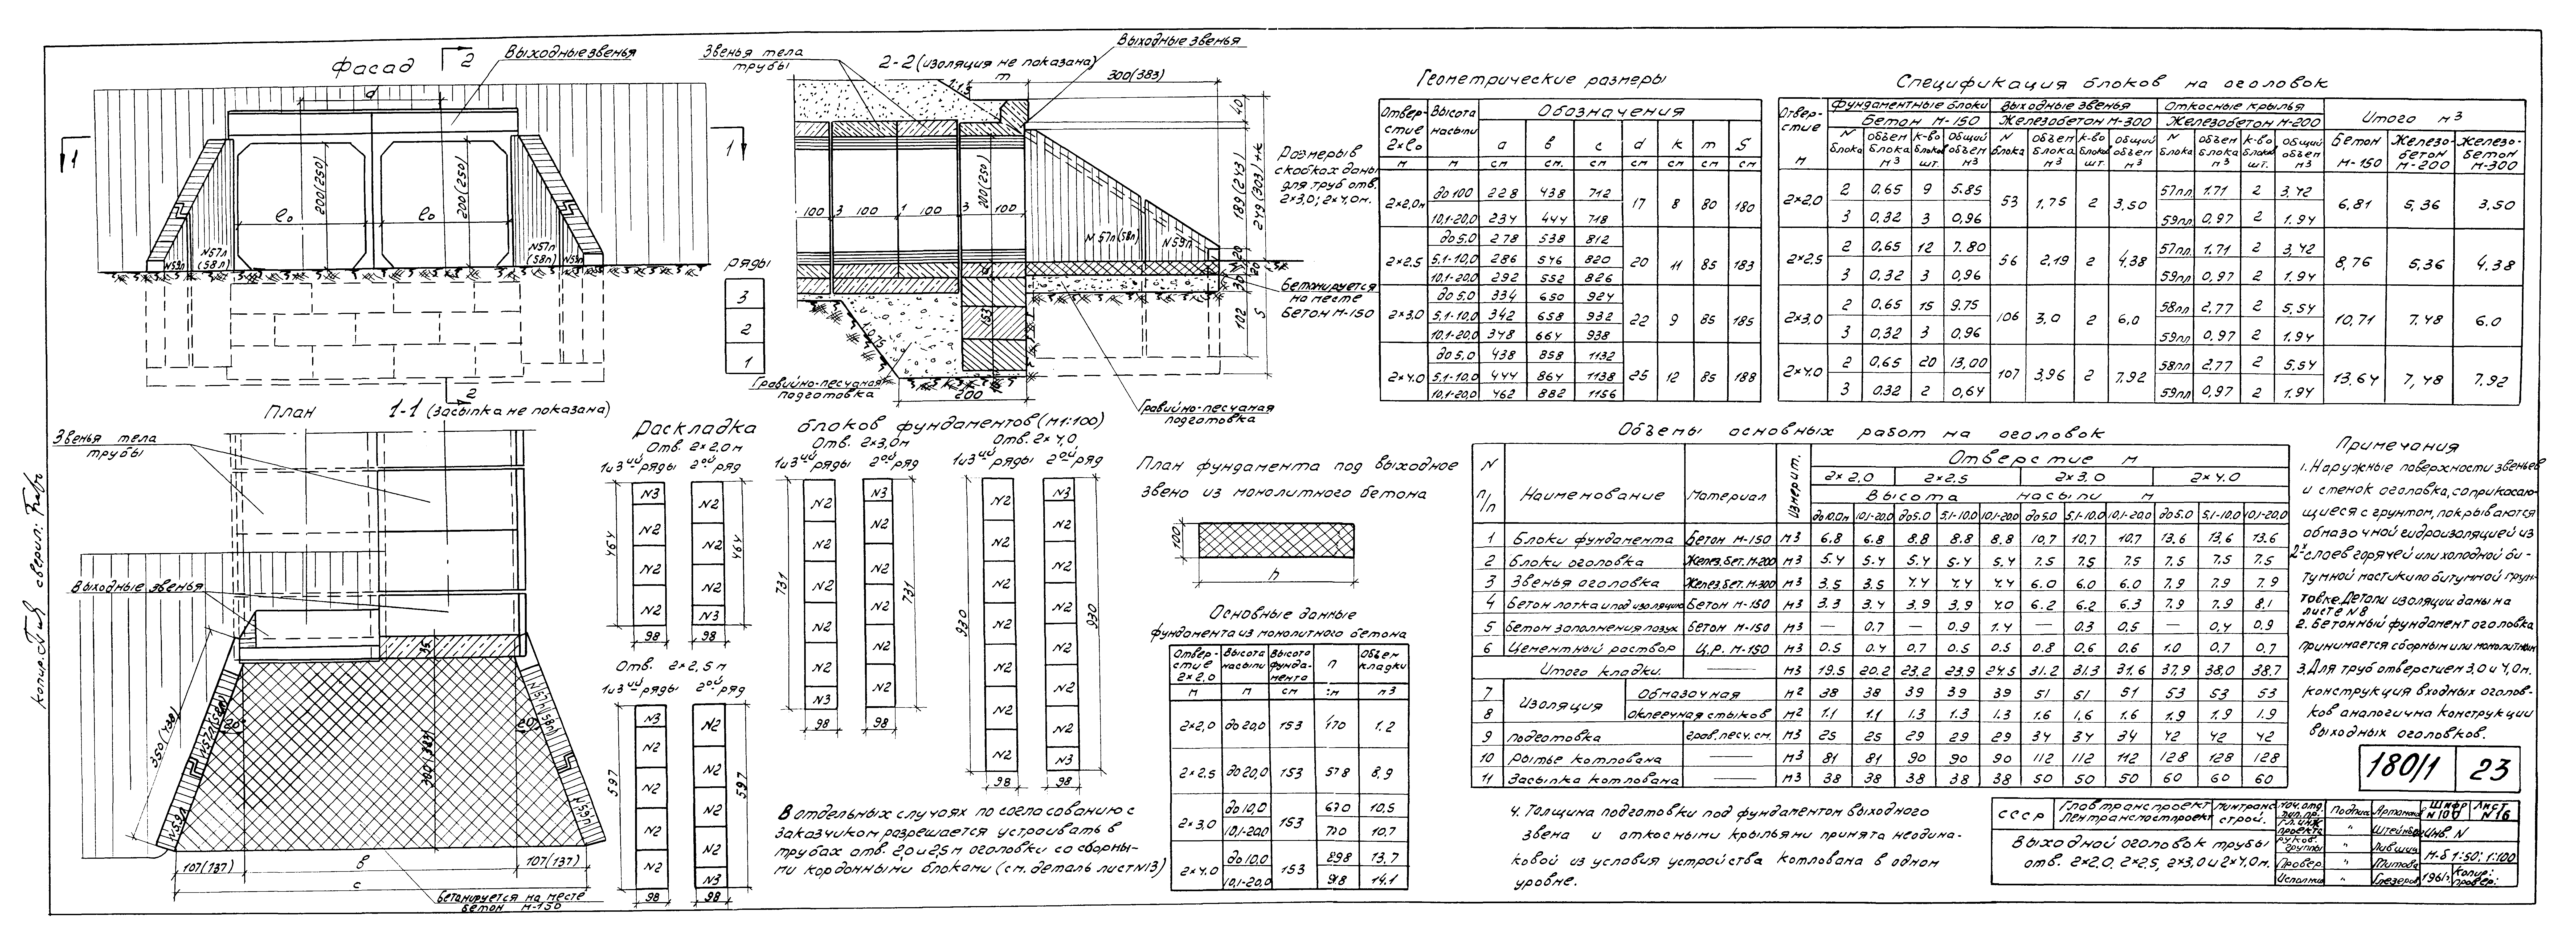 Фасад
2
Выходные звенья
d
1
1
200(250)
200(250)
lo
lo
N57л
(58л)
N59л
N57л
(58л)
N59л
2
ряды
3
2
1
Звенья тела
трубы
2-2 (изоляция не показана)
Выходные звенья
m
1:1.5
300(383)
40
189(243)
249(303)
200(250)
100 3 100 1 100 3 100
N57л(58л)
N59л
20
30
102
S
153
Размеры в
скобках даны
для труб отв.
2×3,0; 2×4,0м.
Бетонируется
на месте
Бетон М-150
Гравийно-песчаная
подготовка
200
Гравийно-песчаная
подготовка
План
1-1 (Засыпка не показана)
Звенья тела
трубы
Выходные звенья
35
350(438)
N57л(58л)
N57л(58л)
20°
20°
300(383)
N59л
N59л
107(137) в 107(137)
с
Бетонируется на месте
Бетон М-150
Раскладка блоков фундаментов (М1:100)
Отв. 2×2,0м
1и3ий ряды 2ой ряд
N3
N2
N2
N2
N2
N2
N2
N2
N2
N3
464
464
98 98
Отв. 2×2,5м
1и3ий ряды 2ой ряд
N3
N2
N2
N2
N2
N2
N2
N2
N2
N2
N3
597
597
98 98
Отв. 2×3,0м
1и3ий ряды 2ой ряд
N2
N2
N2
N2
N2
N3
N3
N2
N2
N2
N2
N2
731
731
98 98
Отв. 2×4,0
1и3ий ряды 2ой ряд
N2
N2
N2
N2
N2
N2
N2
N3
N2
N2
N2
N2
N2
N3
930
930
98 98
В отдельных случаях по согласованию с
заказчиком разрешается устраивать в
трубах отв. 2,0 и 2,5м оголовки со сборны-
ми кордонными блоками (см. деталь лист N13)
План фундамента под выходное
звено из монолитного бетона
100
n
Основные данные
фундамента из монолитного бетона
Отвер-стие 2×2,0 Высота насыпи Высота фунда-мента n Объем кладки
м м см см м3
2×2,0 до20,0 153 470 1.2
2×2.5 до20,0 153 578 8,9
2×3,0 до10,0 153 670 10,5
10,1-20,0 10,7
2×4.0 до10,0 153 898 13,7
10,1-20,0 918 14.1
Геометрические размеры
Отвер-стие 2×lо Высота насыпи Обозначения
а в с d к m S
м м см см. см см см см см
2×2,0м до100 228 438 712 17 8 80 180
10,1-20,0 234 444 718
2×2.5 до5.0 278 538 812 20 11 85 183
5.1-10,0 286 546 820
10.1-20,0 292 552 826
2×3.0 до5.0 334 650 924 22 9 85 185
5.1-10,0 342 658 932
10.1-20,0 348 664 938
2×4.0 до5.0 438 858 1132 25 12 85 188
5.1-10,0 444 864 1138
10,1-20,0 462 882 1156
Спецификация блоков на оголовок
Отвер-стие м Фундаментные блоки Выходные звенья Откосные крылья Итого м3
Бетон М-150 Железобетон М-300 Железобетон М-200
N блока объем блока м3 к-во шт. Общий объем м3 N блока объем блока м3 к-во блоков шт. общий объем м3 N блока объем блока м3 к-во блоков шт. общий объем м3 Бетон М-150 Железо-бетон М-200 Железо-бетон М-300
2×2,0 2 0,65 9 5.85 53 1,75 2 3,50 57пл 1.71 2 3,42 6,81 5,36 3,50
3 0,32 3 0,96 59пл 0,97 2 1.94
2×2,5 2 0,65 12 7.80 56 2,19 2 4.38 57пл 1.71 2 3,42 8,76 5,36 4.38
3 0,32 3 0,96 59пл 0,97 2 1.94
2×3,0 2 0,65 15 9.75 106 3,0 2 6,0 58пл 2,77 2 5,54 10,71 7.48 6.0
3 0,32 3 0,96 59пл 0,97 2 1.94
2×4.0 2 0,65 20 13,00 107 3,96 2 7.92 58пл 2.77 2 5.54 13,64 7,48 7.92
3 0.32 2 0,64 59пл 0,97 2 1.94
Объемы основных работ на оголовок
N п/п Наименование Материал Измерит. Отверстие м
2×2,0 2×2,5 2×3,0 2×4.0
Высота насыпи м
до10.0м 10,1-20,0 до5.0 5,1-10.0 10,1-20,0 до5.0 5,1-10.0 10,1-20,0 до5.0 5,1-10.0 10,1-20,0
1 Блоки фундамента Бетон М-150 м3 6.8 6.8 8.8 8.8 8.8 10,7 10,7 10,7 13.6 13.6 13.6
2 Блоки оголовка Желез.бет.М-200 м3 5.4 5.4 5.4 5.4 5.4 7.5 7.5 7.5 7.5 7.5 7.5
3 Звенья оголовка Желез.бет.М-300 м3 3.5 3.5 4.4 4.4 4.4 6.0 6.0 6.0 7.9 7.9 7.9
4 Бетон лотка и под изоляцию Бетон М-150 м3 3.3 3.4 3.9 3.9 4.0 6.2 6.2 6.3 7.9 7.9 8.1
5 Бетон заполнения пазух Бетон М-150 м3 — 0.7 — 0.9 1.4 — 0.3 0,5 — 0,4 0.9
6 Цементный раствор Ц.Р. М-150 м3 0.5 0.4 0.7 0.5 0.5 0.8 0,6 0,6 1.0 0,7 0,7
Итого кладки. — м3 19.5 20.2 23.2 23.9 24.5 31.2 31.3 31.6 37.9 38,0 38.7
7 Изоляция Обмазочная м2 38 38 39 39 39 51 51 51 53 53 53
8 оклеечная стыков м2 1.1 1.1 1.3 1.3 1.3 1.6 1.6 1.6 1.9 1.9 1.9
9 Подготовка грав.песч.см. м3 25 25 29 29 29 34 34 34 42 42 42
10 Рытье котлована — м3 81 81 90 90 90 112 112 112 128 128 128
11 Засыпка котлована — м3 38 38 38 38 38 50 50 50 60 60 60
4. Толщина подготовки под фундаментом выходного
звена и откосными крыльями принята неодина-
ковой из условия устройства котлована в одном
уровне.
Примечания
1. Наружные поверхности звеньев
и стенок оголовка, соприкасаю-
щиеся с грунтом, покрываются
обмазочной гидроизоляцией из
2х слоев горячей или холодной би-
тумной мастики по битумной грун-
товке. Детали изоляции даны на
листе N8
2. Бетонный фундамент оголовка
принимается сборным или монолитным
3. Для труб отверстием 3,0 и 4,0м.
конструкция входных оголов-
ков аналогична конструкции
выходных оголовков.
180/1 23
СССР Главтранспроект Ленгранспроект Минтрансстрой.
Выходной оголовок трубы
отв. 2×2.0, 2×2,5, 2×3,0 и 2×4,0м.
Нач.отд. Подпись Артамонов
гл.инж. проекта " Штейнберг
руков. группы " Лившиц
Провер. "
Исполнил " Глезеров
Шифр N100 Лист N16
Инв. N
М-б 1:50; 1:100
1961г. Копир: Провер:
Копир. сверил: